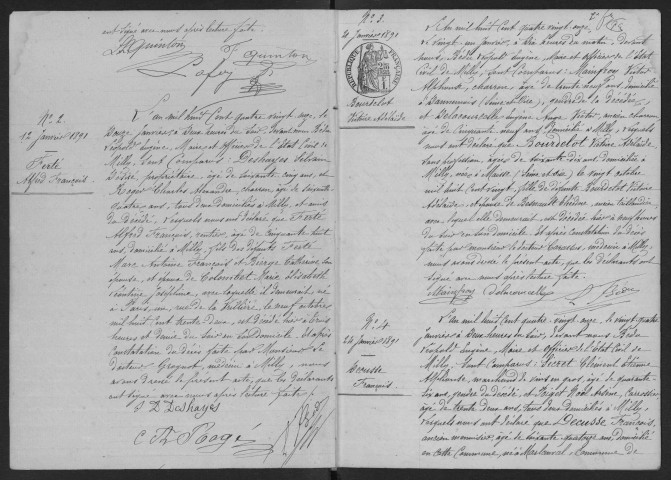 ont signé avec nous après lecture faite.
Quinton
Quinton
N° 2.
12 Janvier 1891
Ferté
Alfred François.
L'an mil huit Cent quatre vingt onze, le
Douze janvier à deux heures du soir, devant nous Bédu
Léopold Eugène, Maire et Officier de l'Etat Civil de
Milly, sont comparus: Deshayes Silvain
Désiré, propriétaire, âgé de soixante cinq ans, et
Rogé Charles Alexandre, charron, âgé de soixante
quatre ans, tous deux domiciliés à Milly, et amis
du Décédé, lesquels nous ont déclaré que Ferté
Alfred François, rentier, âgé de cinquante huit
ans, domicilié à Milly, fils des défunts Ferté
Marc Antoine François et Catherine son
épouse, et époux de Colombet Marie Elisabeth
Joséphine, avec laquelle il demeurait, né
à Paris, rue de la, le neuf octobre
mil huit cent trente deux, est Décédé hier à deux
heures et demie du soir en son domicile. Et après
Constatation du Décès faite par Monsieur le
docteur, médecin à Milly, nous
avons dressé le présent acte, que les Déclarants
ont signé avec nous après lecture faite.
D Deshayes
C A Rogé
Bédu
N° 3.
21 Janvier 1891
RÉPUBLIQUE FRANÇAISE
Bourdelot
Victoire Adélaïde
L'an mil huit Cent quatre vingt onze,
le vingt un janvier, à dix heures du matin, devant
nous, Bédu Léopold Eugène, Maire et officier de l'Etat
Civil de Milly, sont comparus: Mainfroy Victor
Alphonse, charron, âgé de trente neuf ans, domicilié
à Dannemois (Seine et Oise), gendre de la Décédée,
et Delacourcelle Ange Victor, ancien charron
âgé de cinquante neuf ans, domicilié à Milly, lesquels
nous ont déclaré que Bourdelot Victoire Adélaïde
sans profession, âgée de soixante dix ans, domiciliée à
Milly, née à (Seine et Oise), le vingt octobre
mil huit cent vingt, fille de défunte Bourdelot Victoire
Adélaïde, et épouse de
avec lequel elle demeurait, est décédée hier à neuf heures
du soir en son domicile. Et après constatation du décès
faite par monsieur le docteur, médecin à Milly,
nous avons dressé le présent acte, que les Déclarants ont
signé avec nous après lecture faite.
Mainfroy Delacourcelle Bédu
N° 4
24 Janvier 1891
Decusse
François.
L'an mil huit Cent quatre vingt onze, le vingt quatre
janvier à deux heures du soir, devant nous Bédu
Léopold Eugène, Maire et Officier de l'Etat Civil de
Milly, sont Comparus: Sicret Clément Etienne
Alphonse marchand de vins en gros, âgé de quarante
dix ans, gendre du décédé, et Noël Arsène, Carrossier
âgé de trente deux ans, tous deux domiciliés à Milly,
lesquels nous ont déclaré que Decusse François,
ancien menuisier, âgé de soixante quatorze ans, domicilié
en cette Commune, né à, Commune de